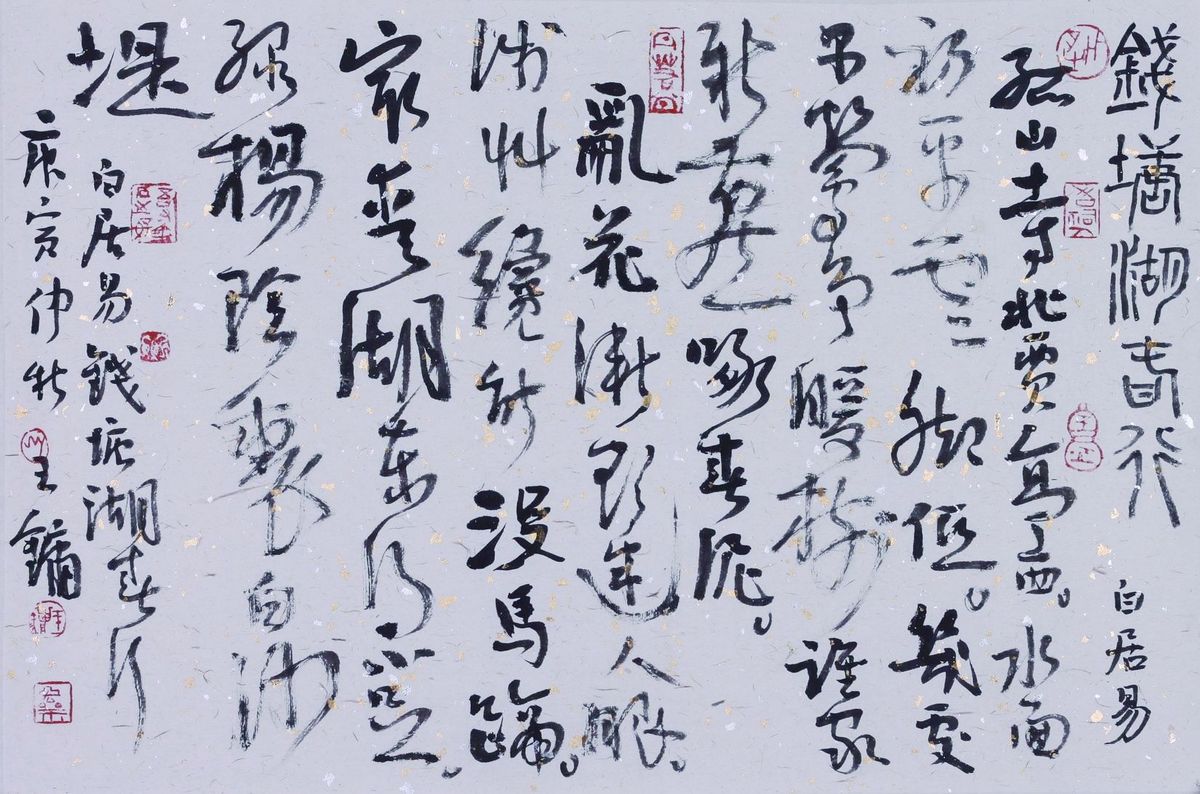 錢塘湖春行 白居易
孤山寺北賈亭西。水面
初平雲脚低。幾處
早鶯爭暖樹誰家
新燕啄春泥。
亂花漸欲迷人眼。
淺艸纔能没馬蹄。
最愛湖東行不足。
綠楊陰裏白沙
堤
白居易錢塘湖春行
庚寅仲秋王鏞